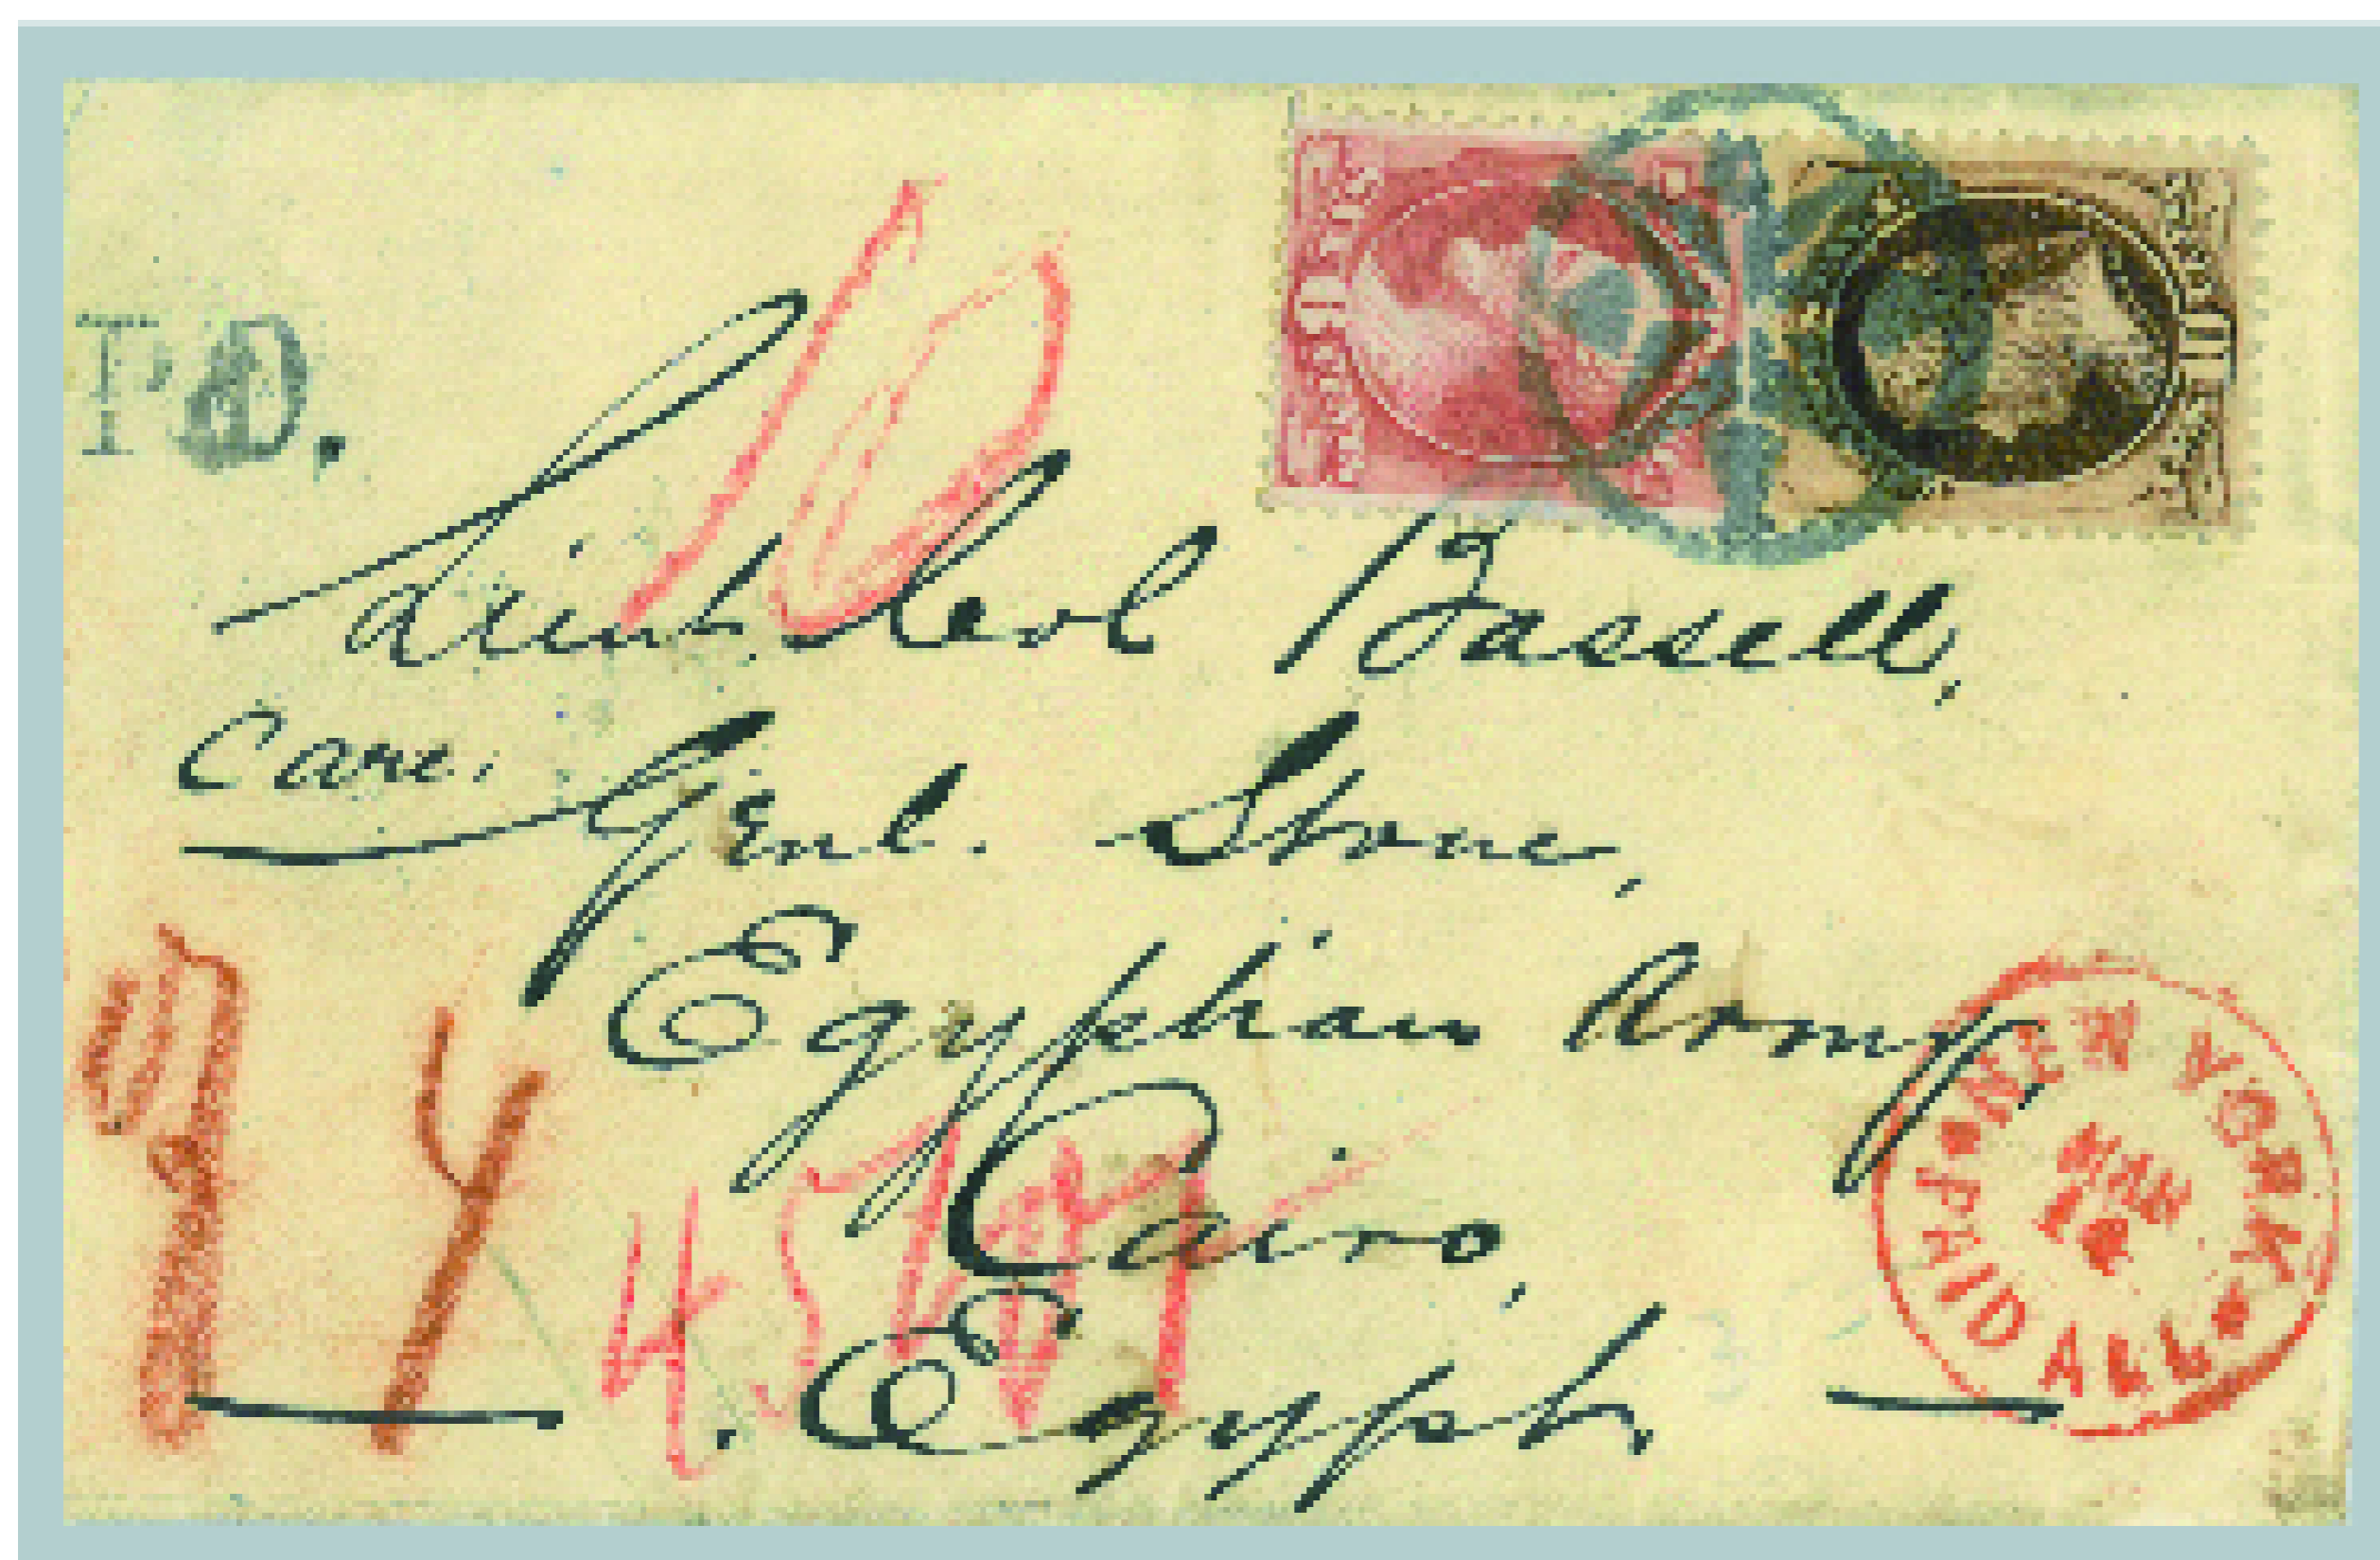 P.D.
Lieut Col Bassell,
Care.
Genl. Stone,
Egyptian Army,
Cairo,
Egypt
NEW YORK
MAR
12
PAID ALL